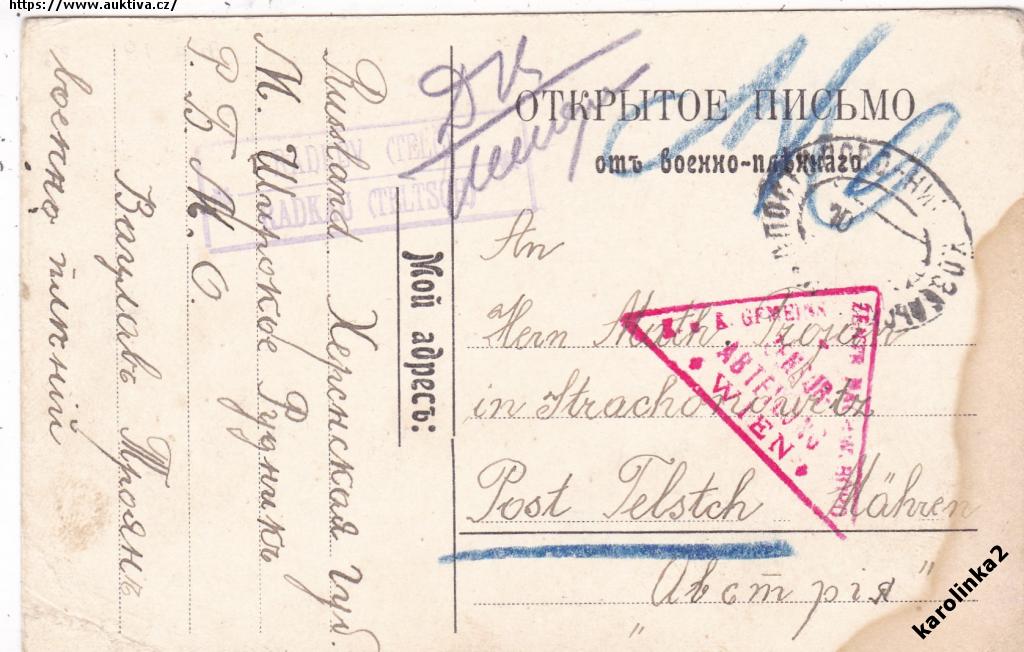 https://www.auktiva.cz/
ОТКРЫТОЕ ПИСЬМО
отъ военно-плѣннаго
An
Herrn Math. Trojan
in Strachoňowitz
Post Telstch Mähren
"Австрія"
Мой адресъ:
Russland Херсонская Губ.
М. Широкое Рудникъ
Р. Г. М. О.
военно плѣнній
Вацлавъ Троянъ
RADKOV (TEL
RADKAU (TELTSCH)
K. u. K. GEMEINS.
ZENSUR
ABTEILUNG
WIEN
karolinka2